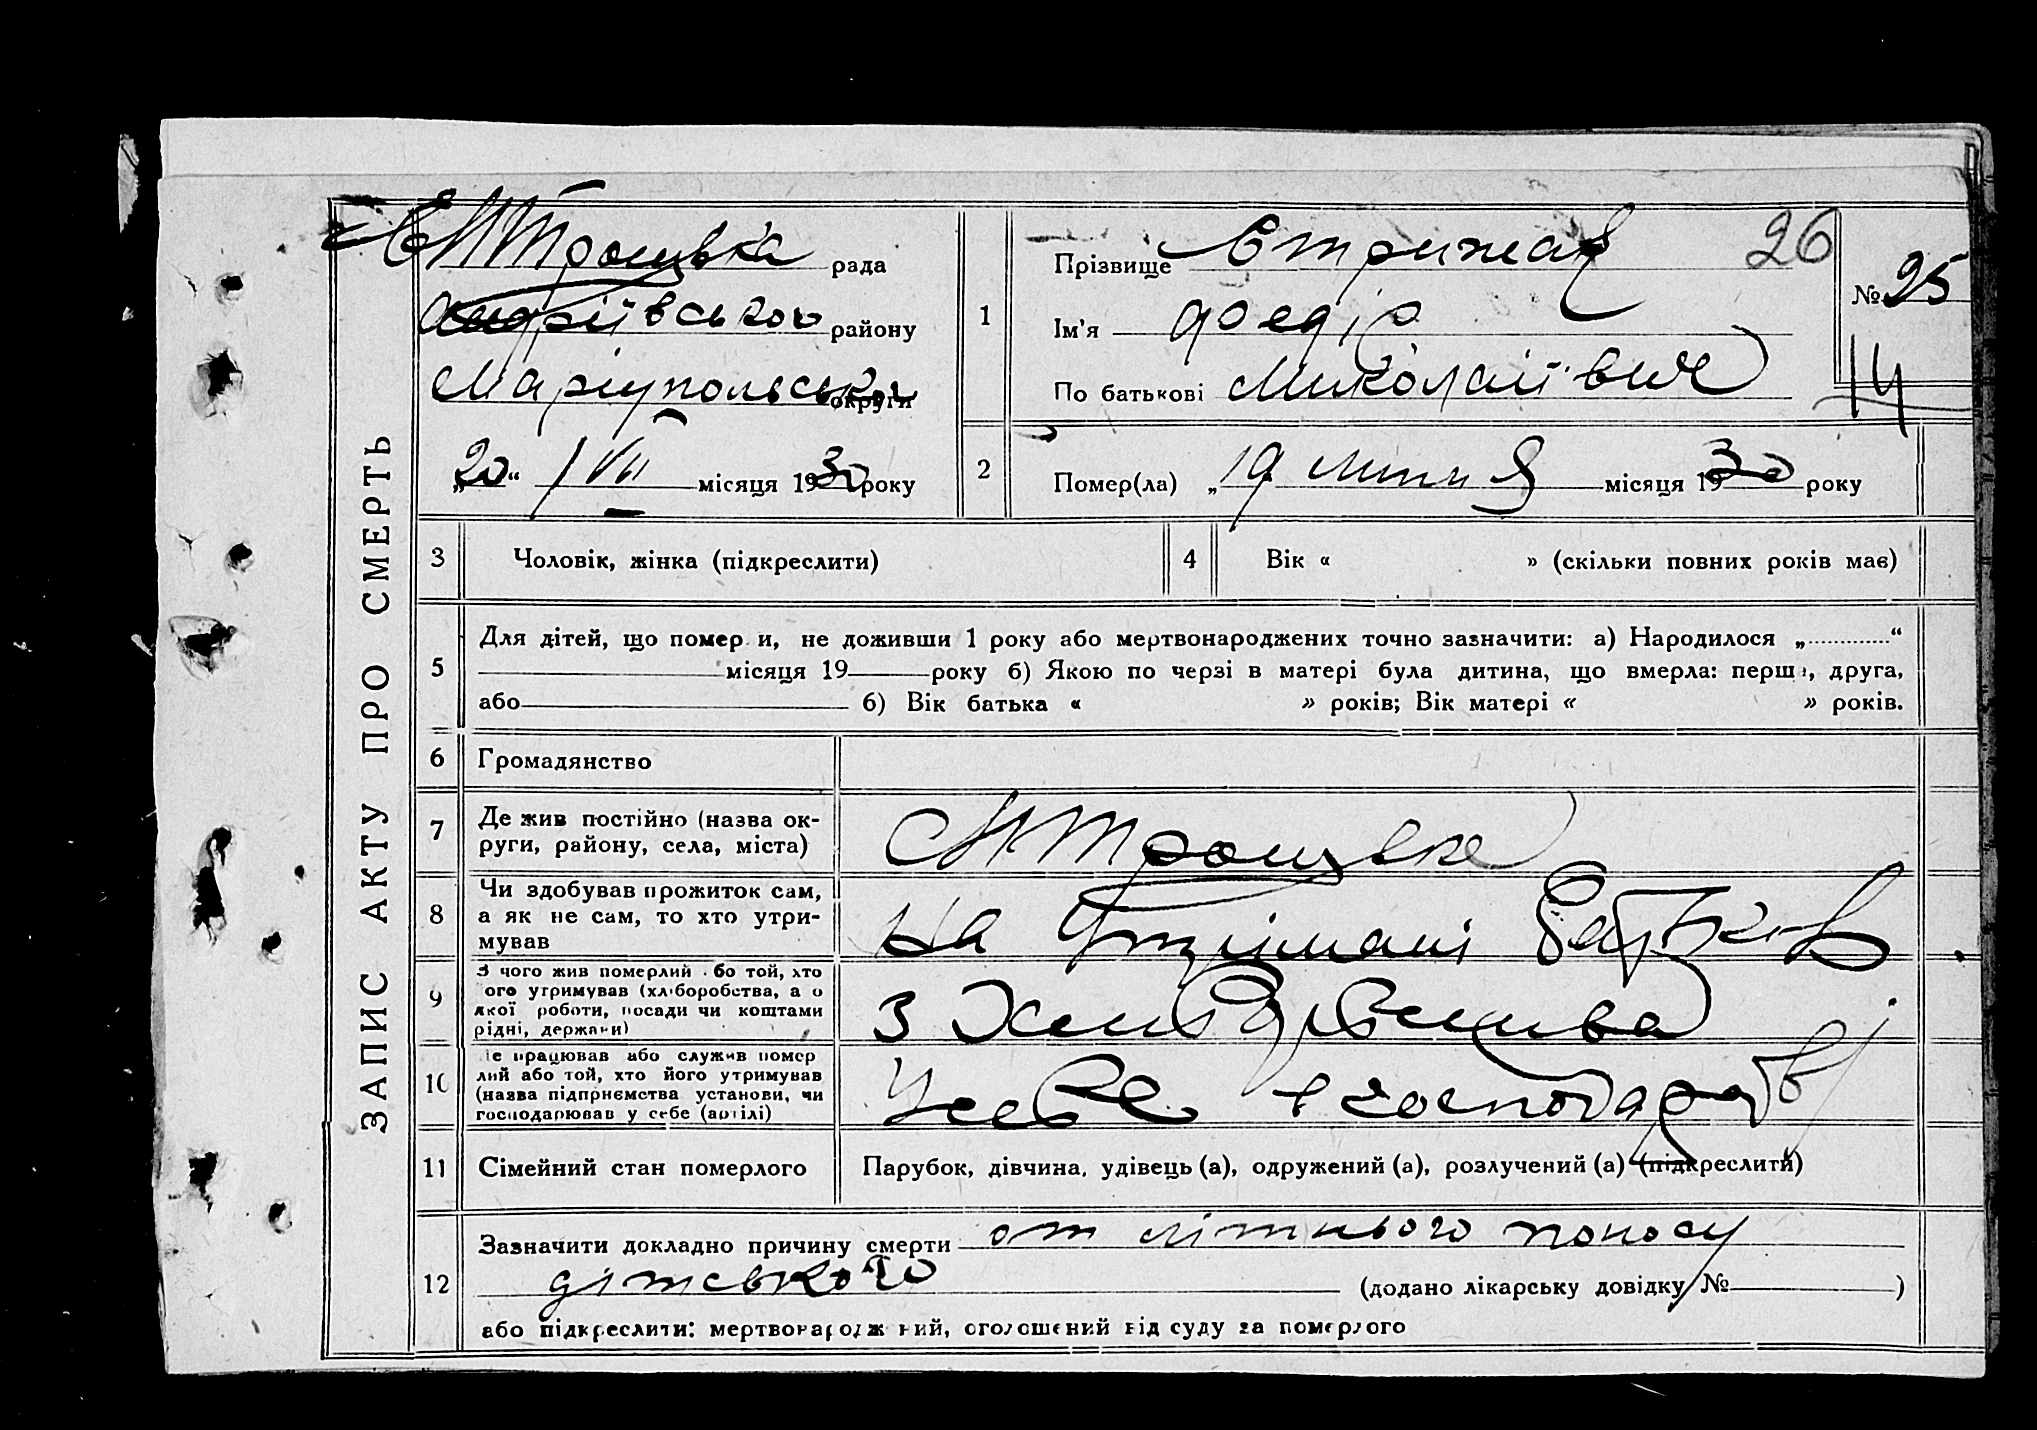 ЗАПИС АКТУ ПРО СМЕРТЬ
рада
Андріївського району
Маріупольської округи
„20“ VII місяця 1930 року
1
Прізвище Стрижак
26
№ 25
14
Ім'я Федір
По батькові Миколаївич
2
Помер(ла) „19 липня місяця 1930 року
3
Чоловік, жінка (підкреслити)
4
Вік « » (скільки повних років має)
5
Для дітей, що помер и, не доживши 1 року або мертвонароджених точно зазначити: а) Народилося „ “
місяця 19 року б) Якою по черзі в матері була дитина, що вмерла: перша, друга,
або б) Вік батька « » років; Вік матері « » років.
6
Громадянство
7
Де жив постійно (назва ок-
руги, району, села, міста)
8
Чи здобував прожиток сам,
а як не сам, то хто утри-
мував
На утримані батьків
9
З чого жив померлий або той, хто
ого утримував (хліборобства, а о
якої роботи, посади чи коштами
рідні, держави)
З Хліборобства
10
Де працював або служив помер
лий або той, хто його утримував
(назва підприємства установи, чи
господарював у себе (артілі)
У себе в господарстві
11
Сімейний стан померлого
Парубок, дівчина, удівець (а), одружений (а), розлучений (а) (підкреслити)
12
Зазначити докладно причину смерти от літнього поносу
дітського (додано лікарську довідку № )
або підкреслити: мертвонародж ний, оголошений від суду за померлого